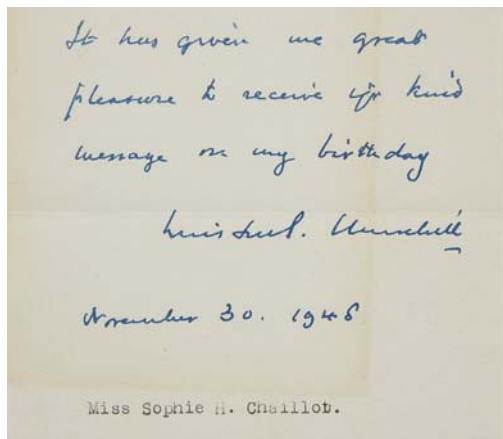 It has given me great
pleasure to receive yr kind
message on my birthday
Winston S. Churchill
November 30. 1948
Miss Sophie H. Chaillot.